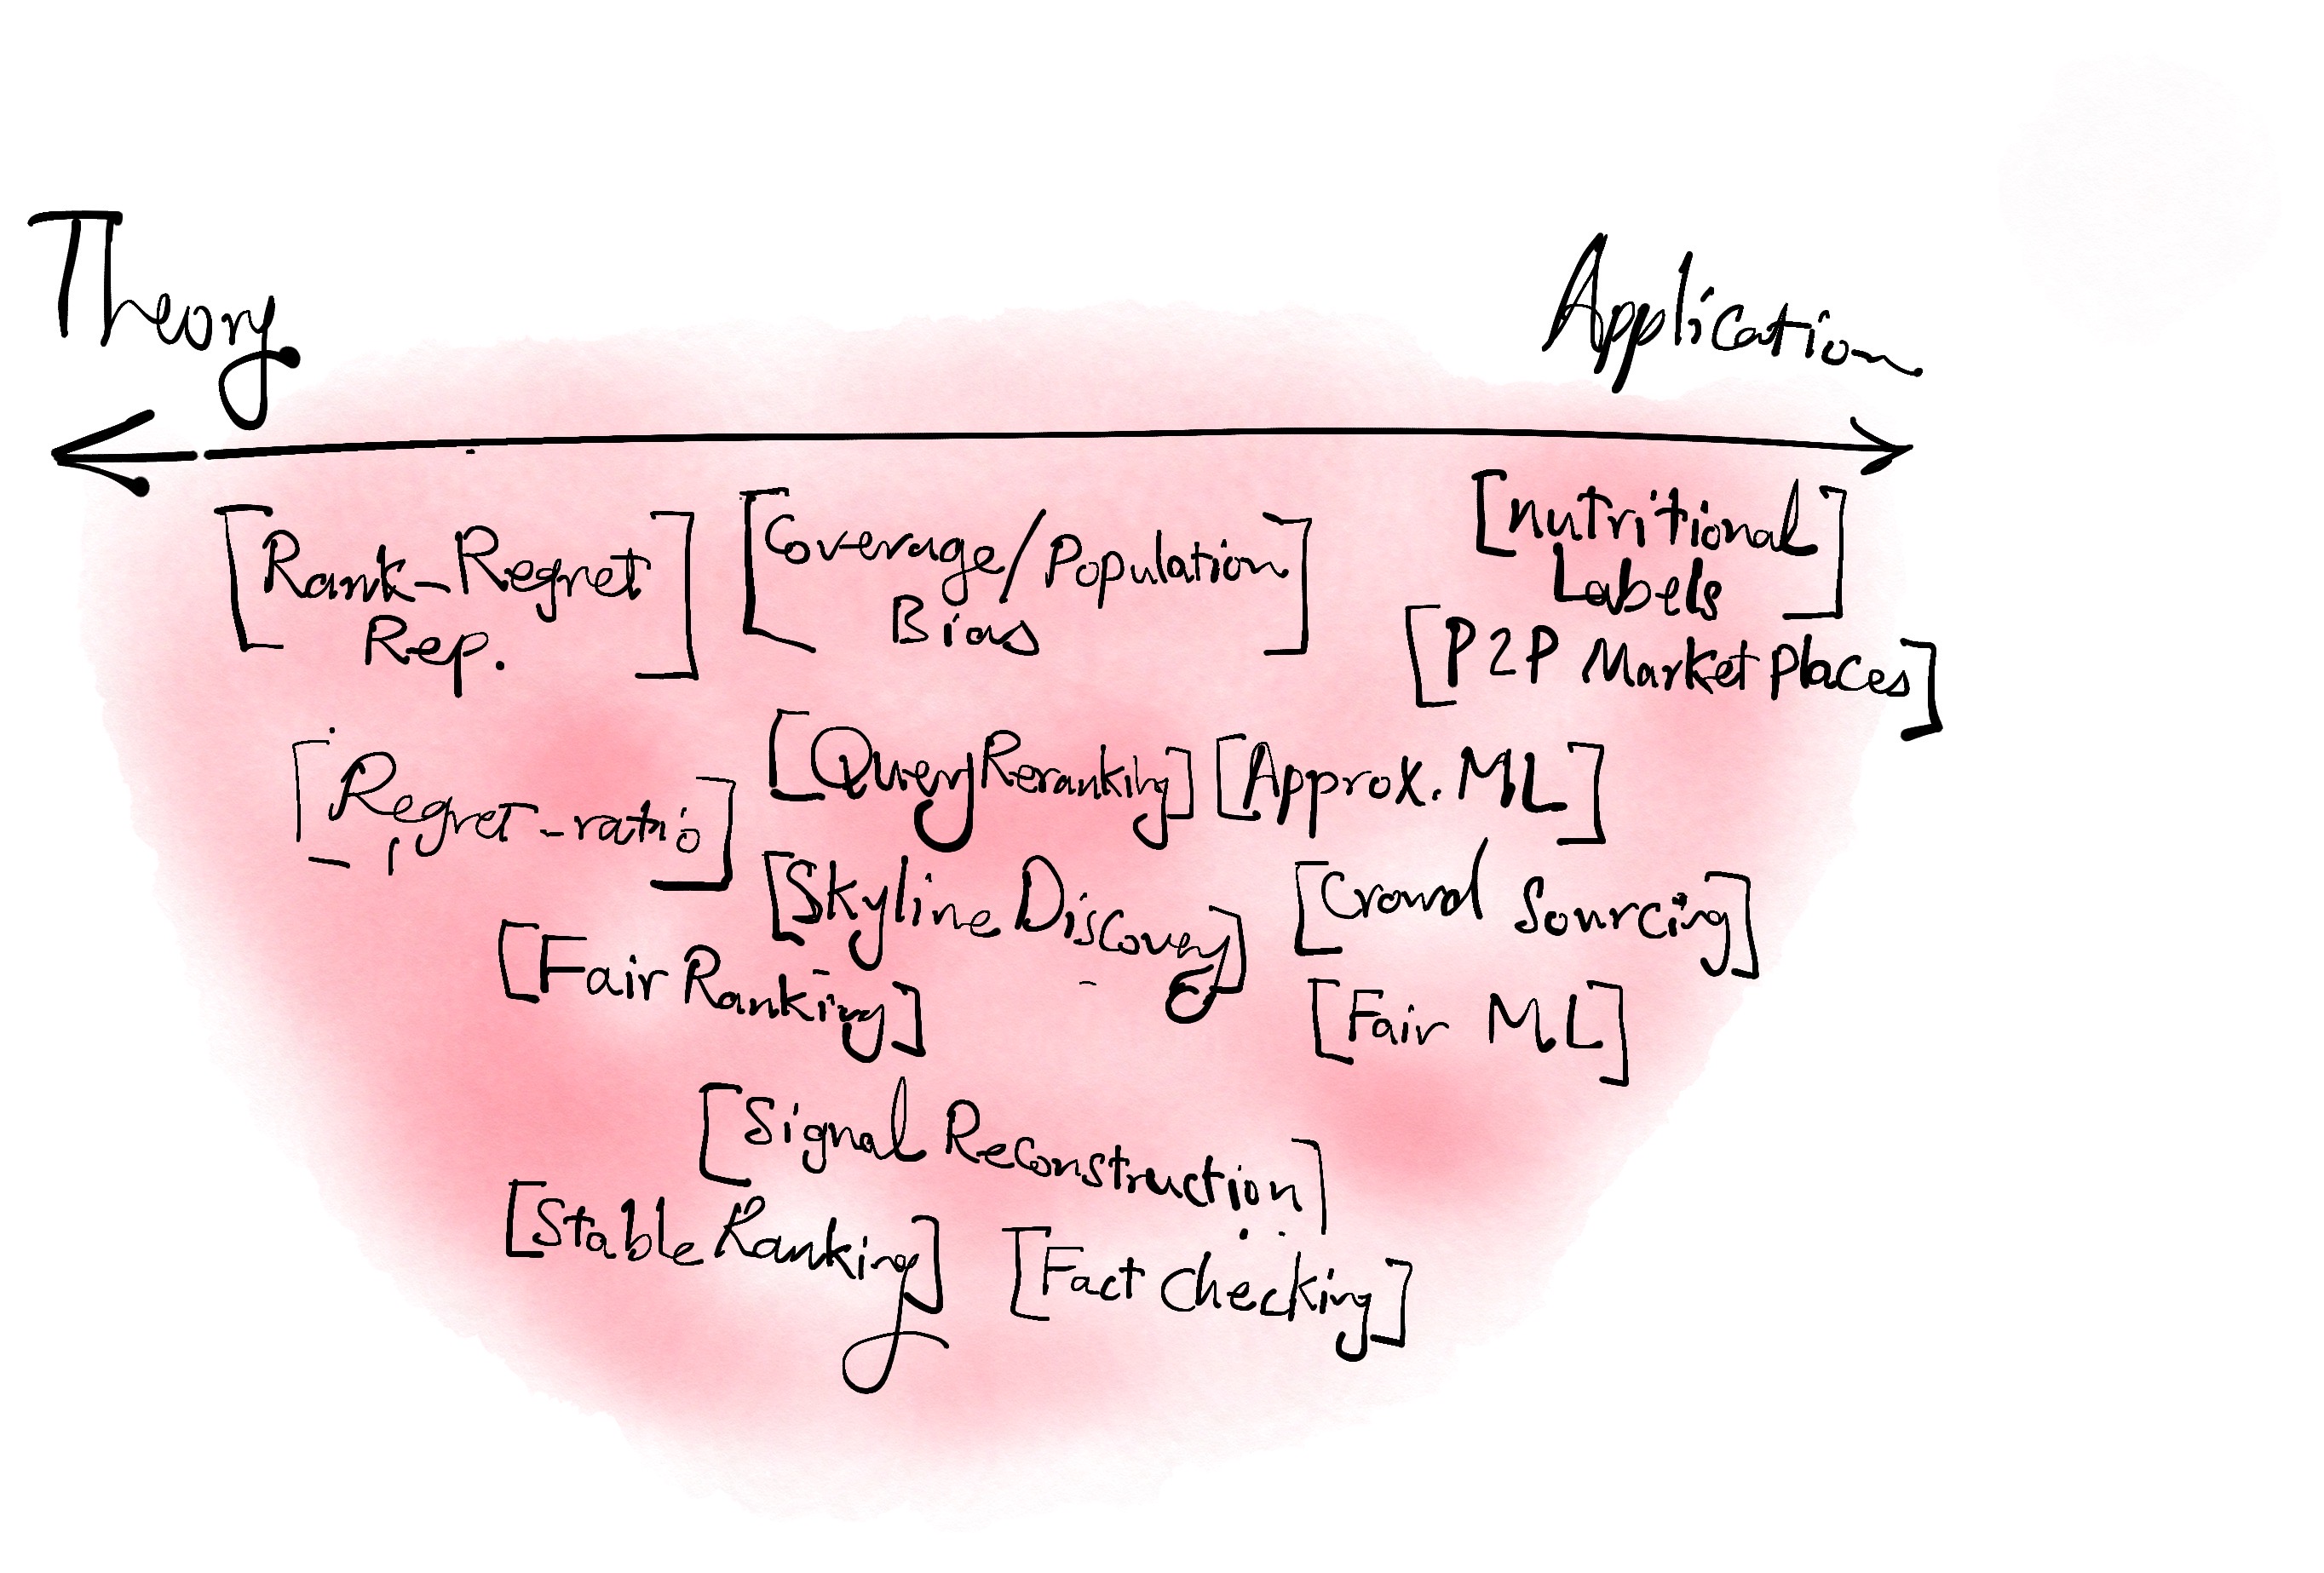 Theory
Application
[Rank-Regret
Rep.]
[Coverage/Population
Bias]
[nutritional
Labels]
[P2P Market Places]
[Regret-ratio]
[Query Reranking]
[Approx. ML]
[Skyline Discovery]
[Crowd Sourcing]
[Fair Ranking]
[Fair ML]
[Signal Reconstruction]
[Stable Ranking]
[Fact Checking]